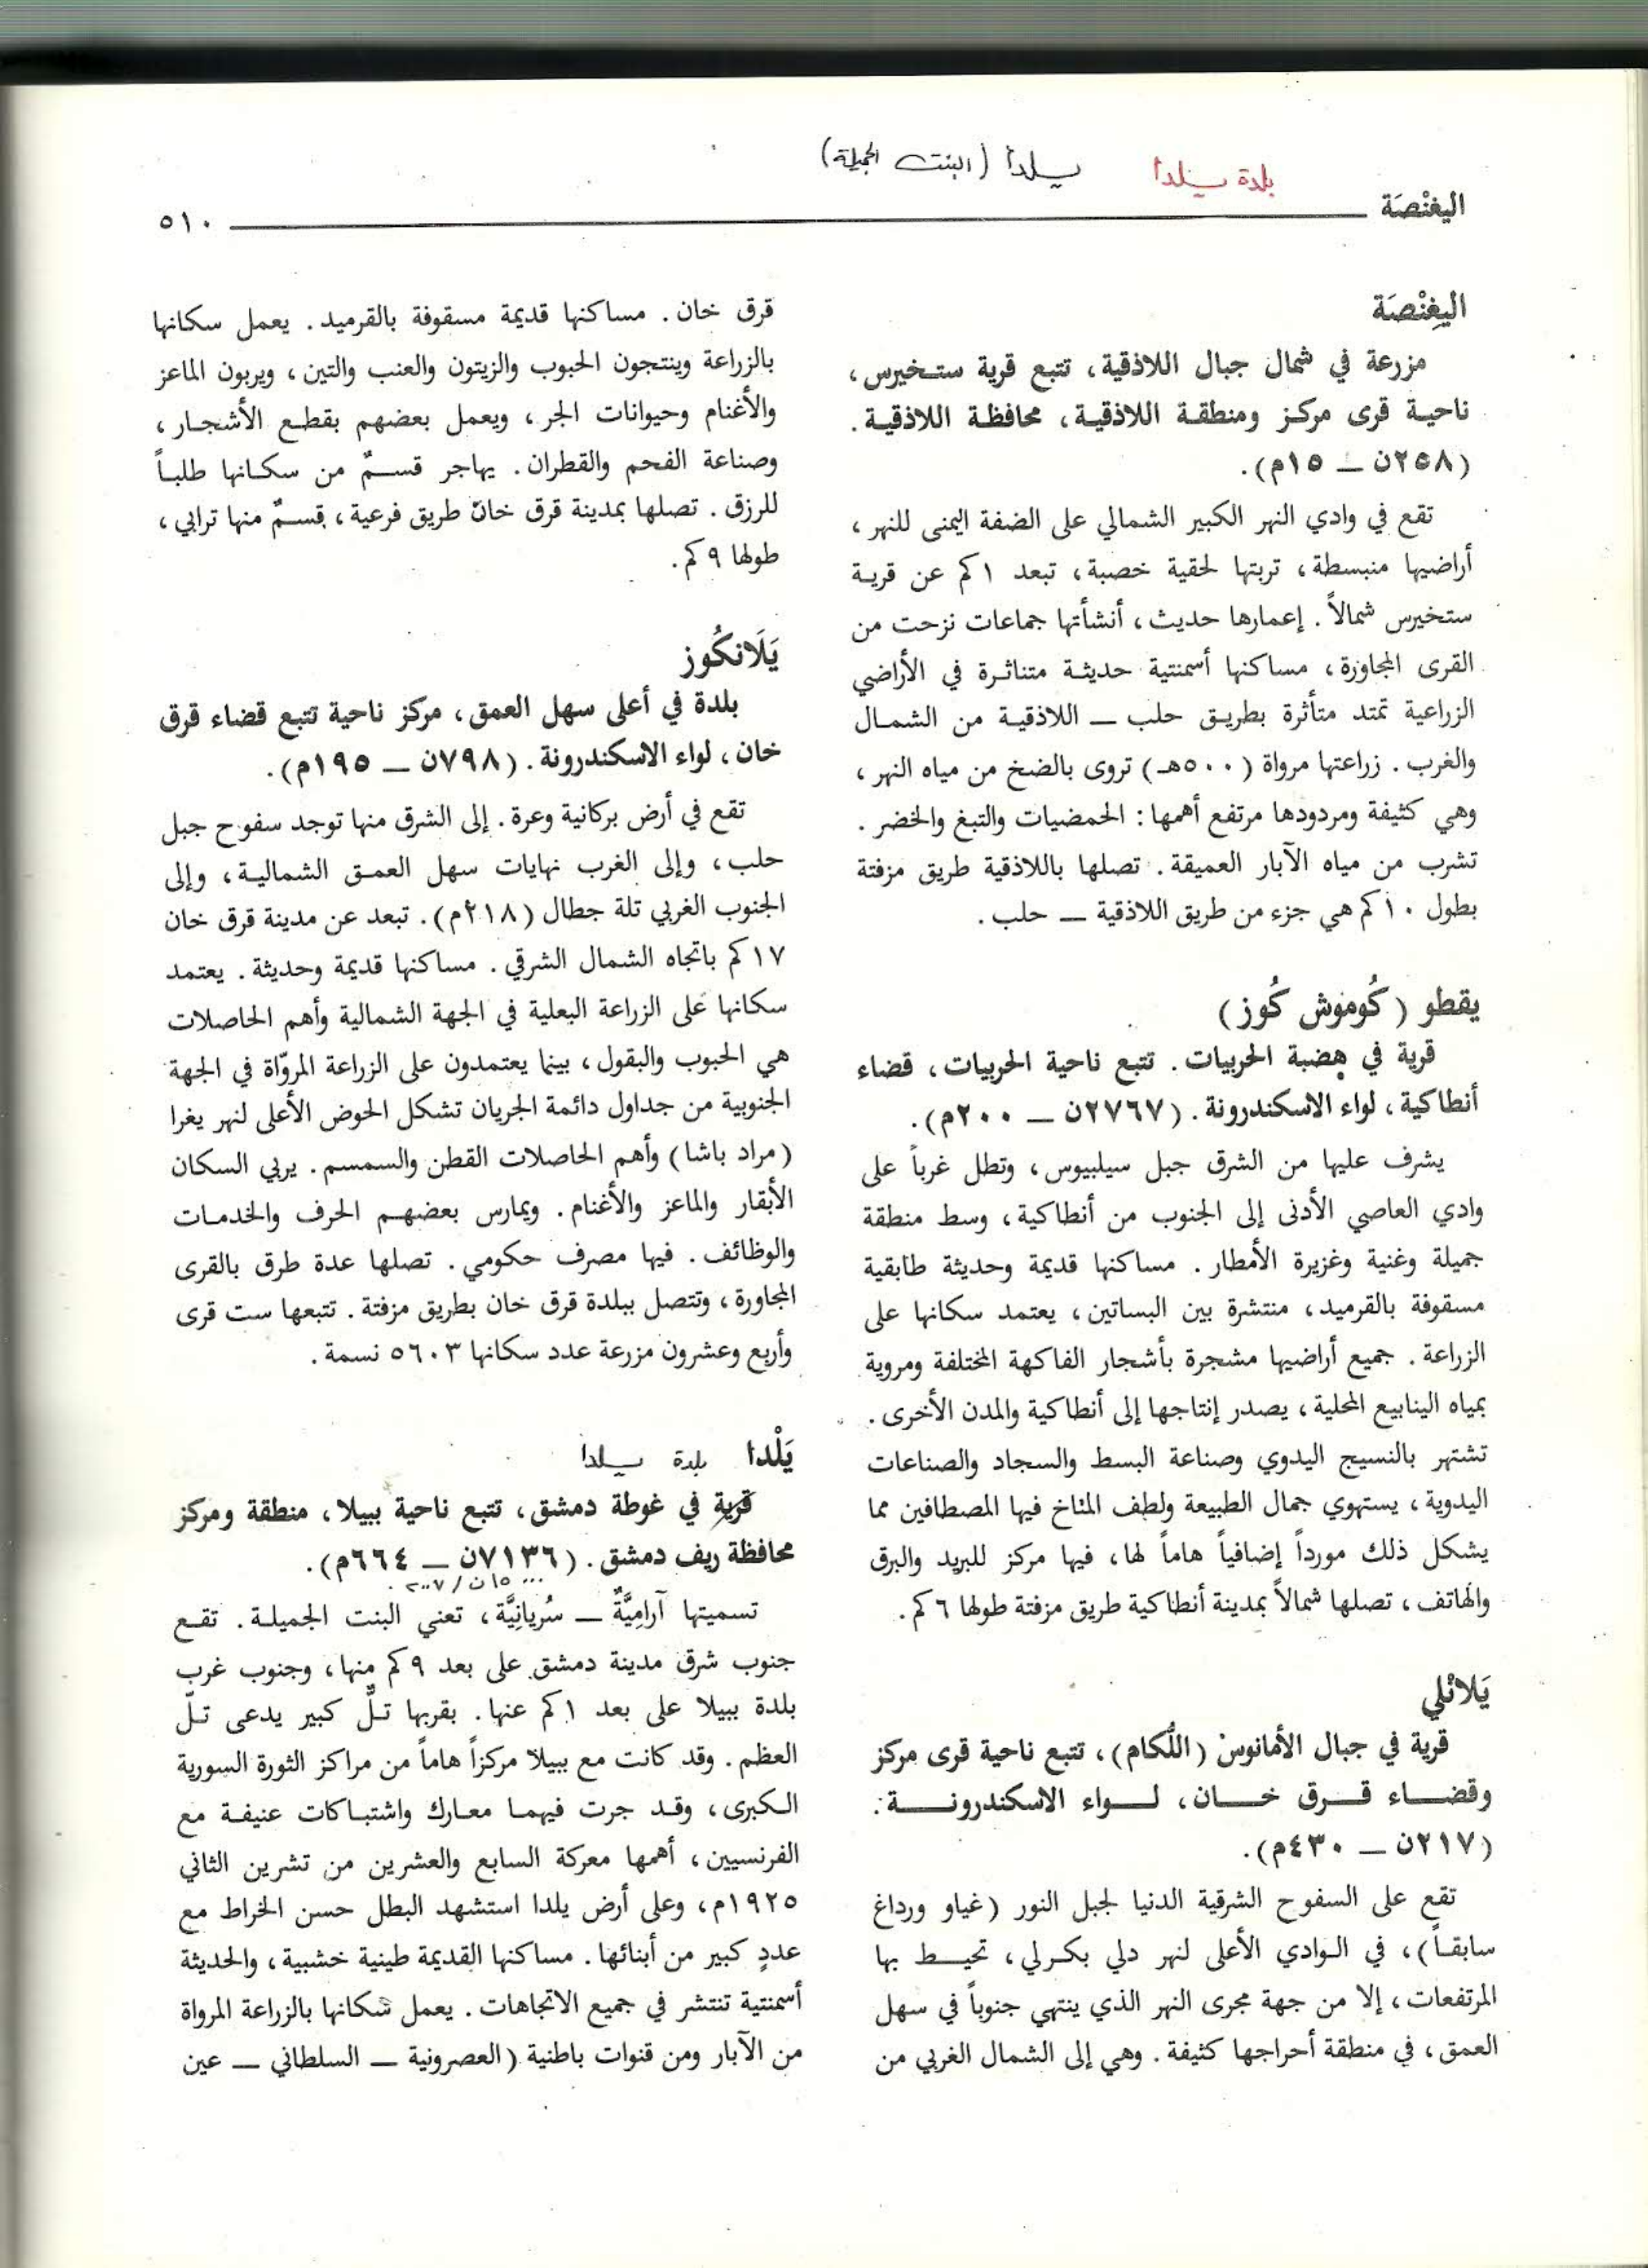 بلدة يلدا
يلدا (البنت الجميلة)
اليغنْصَة
٥١٠
اليِغنْصَة
مزرعة في شمال جبال اللاذقية، تتبع قرية ستخيرس،
ناحية قرى مركز ومنطقة اللاذقية، محافظة اللاذقية.
(٢٥٨ن — ١٥م).
تقع في وادي النهر الكبير الشمالي على الضفة اليمنى للنهر،
أراضيها منبسطة، تربتها لحقية خصبة، تبعد ١ كم عن قرية
ستخيرس شمالاً. إعمارها حديث، أنشأتها جماعات نزحت من
القرى المجاورة، مساكنها أسمنتية حديثة متناثرة في الأراضي
الزراعية تمتد متأثرة بطريق حلب — اللاذقية من الشمال
والغرب. زراعتها مرواة (٥٠٠هـ) تروى بالضخ من مياه النهر،
وهي كثيفة ومردودها مرتفع أهمها: الحمضيات والتبغ والخضر.
تشرب من مياه الآبار العميقة. تصلها باللاذقية طريق مزفتة
بطول ١٠ كم هي جزء من طريق اللاذقية — حلب.
يقطو (كُوموش كُوز)
قرية في هضبة الحربيات. تتبع ناحية الحربيات، قضاء
أنطاكية، لواء الاسكندرونة. (٢٧٦٧ن — ٢٠٠م).
يشرف عليها من الشرق جبل سيلبيوس، وتطل غرباً على
وادي العاصي الأدنى إلى الجنوب من أنطاكية، وسط منطقة
جميلة وغنية وغزيرة الأمطار. مساكنها قديمة وحديثة طابقية
مسقوفة بالقرميد، منتشرة بين البساتين، يعتمد سكانها على
الزراعة. جميع أراضيها مشجرة بأشجار الفاكهة المختلفة ومروية
بمياه الينابيع المحلية، يصدر إنتاجها إلى أنطاكية والمدن الأخرى.
تشتهر بالنسيج اليدوي وصناعة البسط والسجاد والصناعات
اليدوية، يستهوي جمال الطبيعة ولطف المناخ فيها المصطافين مما
يشكل ذلك مورداً إضافياً هاماً لها، فيها مركز للبريد والبرق
والهاتف، تصلها شمالاً بمدينة أنطاكية طريق مزفتة طولها ٦ كم.
يَلانْلي
قرية في جبال الأمانوس (اللُّكام)، تتبع ناحية قرى مركز
وقضاء قرق خان، لواء الاسكندرونة.
(٢١٧ن — ٤٣٠م).
تقع على السفوح الشرقية الدنيا لجبل النور (غياو ورداغ
سابقاً)، في الوادي الأعلى لنهر دلي بكرلي، تحيط بها
المرتفعات، إلا من جهة مجرى النهر الذي ينتهي جنوباً في سهل
العمق، في منطقة أحراجها كثيفة. وهي إلى الشمال الغربي من
قرق خان. مساكنها قديمة مسقوفة بالقرميد. يعمل سكانها
بالزراعة وينتجون الحبوب والزيتون والعنب والتين، ويربون الماعز
والأغنام وحيوانات الجر، ويعمل بعضهم بقطع الأشجار،
وصناعة الفحم والقطران. يهاجر قسمٌ من سكانها طلباً
للرزق. تصلها بمدينة قرق خان طريق فرعية، قسمٌ منها ترابي،
طولها ٩ كم.
يَلَانكُوز
بلدة في أعلى سهل العمق، مركز ناحية تتبع قضاء قرق
خان، لواء الاسكندرونة. (٧٩٨ن — ١٩٥م).
تقع في أرض بركانية وعرة. إلى الشرق منها توجد سفوح جبل
حلب، وإلى الغرب نهايات سهل العمق الشمالية، وإلى
الجنوب الغربي تلة جطال (٢١٨م). تبعد عن مدينة قرق خان
١٧ كم باتجاه الشمال الشرقي. مساكنها قديمة وحديثة. يعتمد
سكانها على الزراعة البعلية في الجهة الشمالية وأهم الحاصلات
هي الحبوب والبقول، بينما يعتمدون على الزراعة المروّاة في الجهة
الجنوبية من جداول دائمة الجريان تشكل الحوض الأعلى لنهر يغرا
(مراد باشا) وأهم الحاصلات القطن والسمسم. يربي السكان
الأبقار والماعز والأغنام. ويمارس بعضهم الحرف والخدمات
والوظائف. فيها مصرف حكومي. تصلها عدة طرق بالقرى
المجاورة، وتتصل ببلدة قرق خان بطريق مزفتة. تتبعها ست قرى
وأربع وعشرون مزرعة عدد سكانها ٥٦٠٣ نسمة.
يَلْدا بلدة يلدا
قرية في غوطة دمشق، تتبع ناحية ببيلا، منطقة ومركز
محافظة ريف دمشق. (٧١٣٦ن — ٦٦٤م).
٠٠٠ ١٥ن / ٢٠٠٧
تسميتها آرامِيَّةٌ — سُريانِيَّة، تعني البنت الجميلة. تقع
جنوب شرق مدينة دمشق على بعد ٩ كم منها، وجنوب غرب
بلدة ببيلا على بعد ١ كم عنها. بقربها تلٌّ كبير يدعى تلّ
العظم. وقد كانت مع ببيلا مركزاً هاماً من مراكز الثورة السورية
الكبرى، وقد جرت فيهما معارك واشتباكات عنيفة مع
الفرنسيين، أهمها معركة السابع والعشرين من تشرين الثاني
١٩٢٥م، وعلى أرض يلدا استشهد البطل حسن الخراط مع
عددٍ كبير من أبنائها. مساكنها القديمة طينية خشبية، والحديثة
أسمنتية تنتشر في جميع الاتجاهات. يعمل سكانها بالزراعة المرواة
من الآبار ومن قنوات باطنية (العصرونية — السلطاني — عين